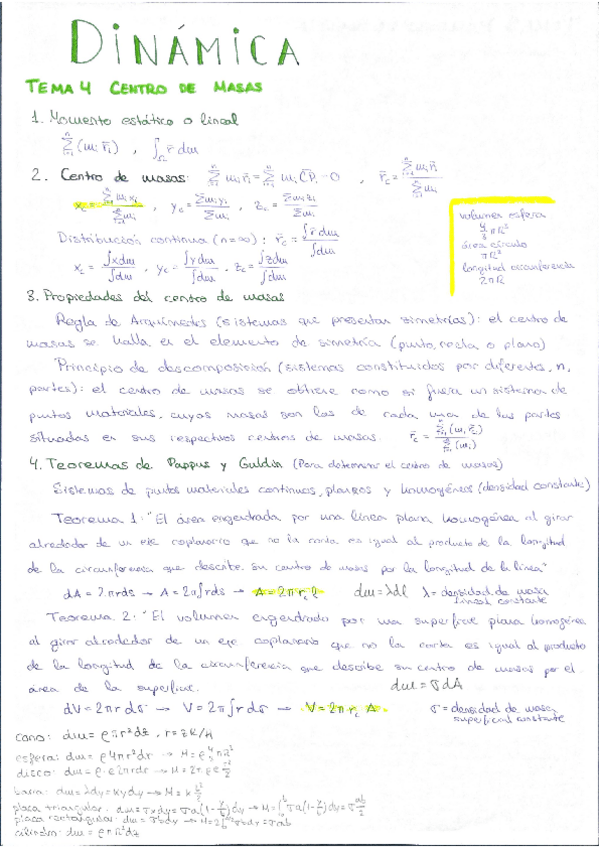 DINÁMICA
TEMA 4 CENTRO DE MASAS
1. Momento estático o lineal
∑ᵢ₌₁ⁿ (mᵢ r̄ᵢ) , ∫_Ω r̄ dm
2. Centro de masas: ∑ᵢ₌₁ⁿ mᵢ r̄ᵢ = ∑ᵢ₌₁ⁿ mᵢ C̄Pᵢ = 0 , r̄c = ∑ᵢ₌₁ⁿ mᵢ r̄ᵢ / ∑ᵢ₌₁ⁿ mᵢ
xc = ∑ᵢ₌₁ⁿ mᵢ xᵢ / ∑ᵢ₌₁ⁿ mᵢ , yc = ∑mᵢyᵢ / ∑mᵢ , zc = ∑mᵢzᵢ / ∑mᵢ
Distribución continua (n=∞): r̄c = ∫r̄dm / ∫dm
xc = ∫xdm / ∫dm , yc = ∫ydm / ∫dm , zc = ∫zdm / ∫dm
volumen esfera
4/3 πR³
área círculo
πR²
longitud circunferencia
2πR
3. Propiedades del centro de masas
Regla de Arquímedes (sistemas que presentan simetrías): el centro de
masas se halla en el elemento de simetría (punto, recta o plano)
Principio de descomposición (sistemas constituidos por diferentes, n,
partes): el centro de masas se obtiene como si fuera un sistema de
puntos materiales, cuyas masas son las de cada una de las partes
situadas en sus respectivos centros de masas.
4. Teoremas de Pappus y Guldin (Para determinar el centro de masas)
Sistemas de puntos materiales continuos, planos y homogéneos (densidad constante)
Teorema 1: "El área engendrada por una línea plana homogénea al girar
alrededor de un eje coplanario que no la corta es igual al producto de la longitud
de la circunferencia que describe su centro de masas por la longitud de la línea"
dA = 2πrds → A = 2π∫rds → A = 2π rc l dm = λdl λ = densidad de masa
lineal constante
Teorema 2: "El volumen engendrado por una superficie plana homogénea
al girar alrededor de un eje coplanario que no la corta es igual al producto
de la longitud de la circunferencia que describe su centro de masas por el
área de la superficie.
dm = σdA
dV = 2πrdσ → V = 2π∫rdσ → V = 2π rc A σ = densidad de masa
superficial constante
cono: dm = ρπr²dz , r = zR/H
esfera: dm = ρ4πr²dr → M = ρ
disco: dm = ρ·e2πrdr → M = 2πρe
barra: dm = λdy = kydy → M = k
placa triangular: dm = σxdy = σa(1-y/b)dy
placa rectangular: dm = σbdy
cilindro: dm = ρπR²dz